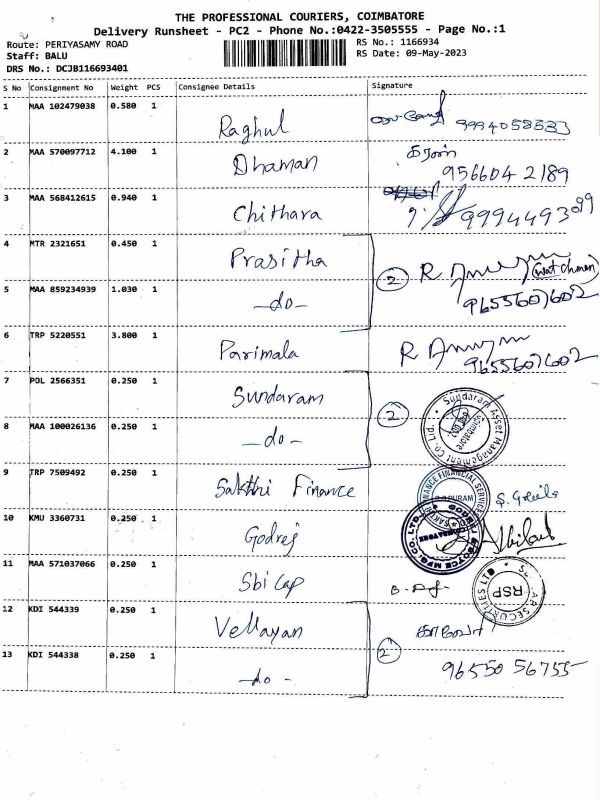 THE PROFESSIONAL COURIERS, COIMBATORE
Delivery Runsheet - PC2 - Phone No.:0422-3505555 - Page No.:1
Route: PERIYASAMY ROAD
RS No.: 1166934
Staff: BALU
RS Date: 09-May-2023
DRS No.: DCJB116693401
S No Consignment No Weight PCS Consignee Details Signature
1 MAA 102479038 0.580 1 Raghul 9994058533
2 MAA 570097712 4.100 1 Dhaman
956604 2189
3 MAA 568412615 0.940 1 Chithara 9994493099
4 MTR 2321651 0.450 1 Prasitha 2 R (watchman)
5 MAA 859234939 1.030 1 -do- 9655607602
6 TRP 5220551 3.800 1 Parimala R 9655607602
7 POL 2566351 0.250 1 Sundaram 2 Sundaram Asset Management Co. Ltd. Coimbatore
8 MAA 100026136 0.250 1 -do-
9 TRP 7509492 0.250 1 Sakthi Finance FINANCE FINANCIAL SERVICES PURAM
10 KMU 3360731 0.250 1 Godrej GODREJ & BOYCE MFG. CO. LTD.
11 MAA 571037066 0.250 1 Sbi Cap AR SECURITIES LTD RSP
12 KDI 544339 0.250 1 Vellayan 2
13 KDI 544338 0.250 1 -do- 96550 56755